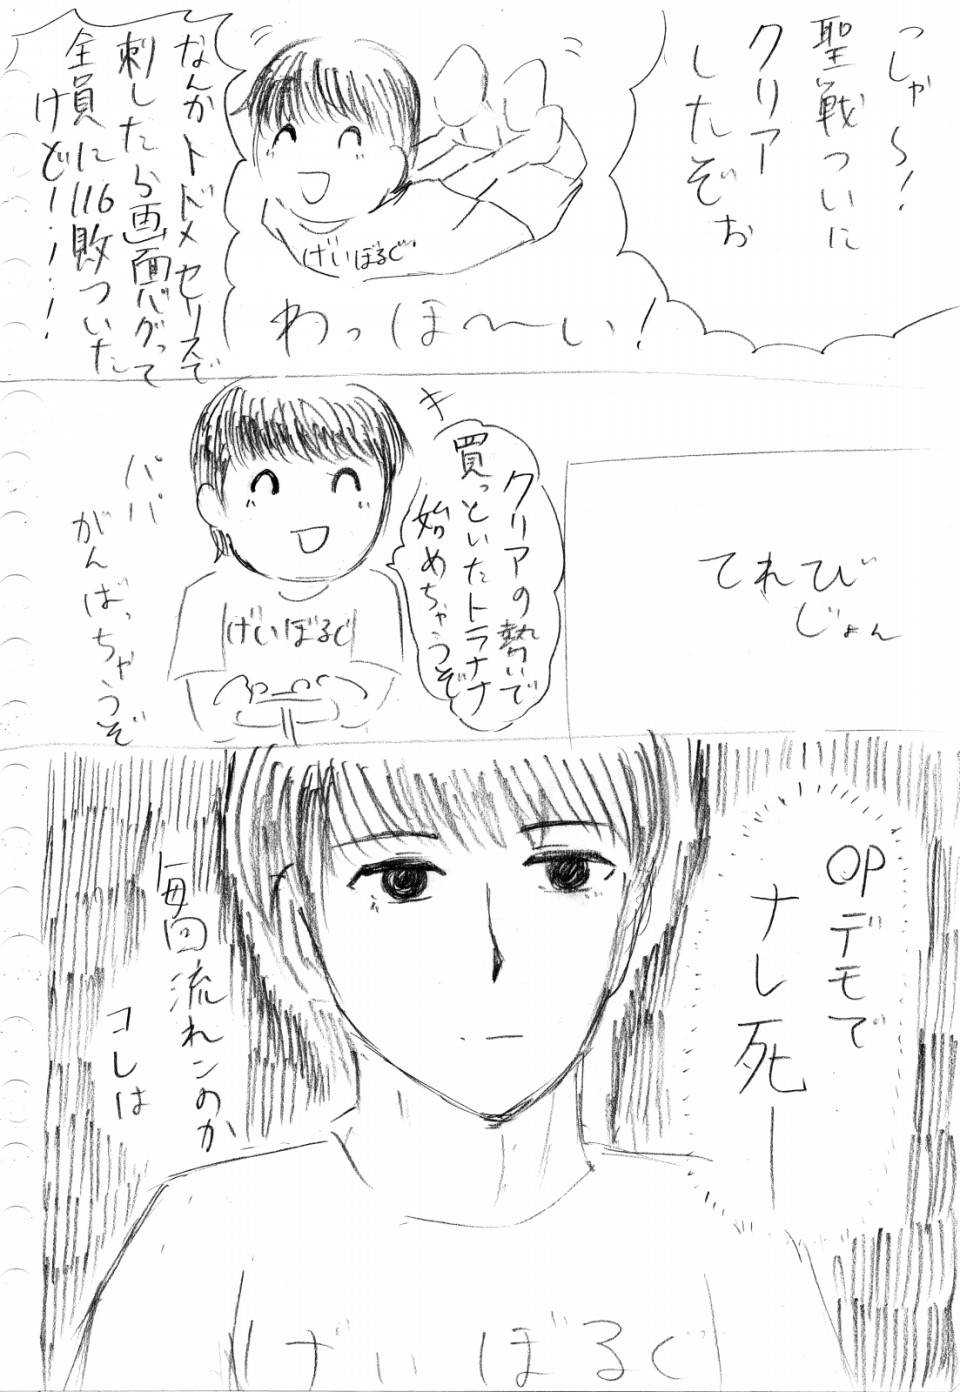 っしゃ〜!
聖戦ついに
クリア
したぞぉ
げいぼるぐ
わっほ〜い!
なんかトドメセリスで
刺したら画面バグって
全員に116敗ついた
けどー!!!
てれび
じょん
クリアの勢いで
買っといたトラナナ
始めちゃうぞ
キ
げいぼるぐ
パパ
がんばっちゃうぞ
OPデモで
ナレ死ー
毎回流れンのか
コレは
げいぼるぐ